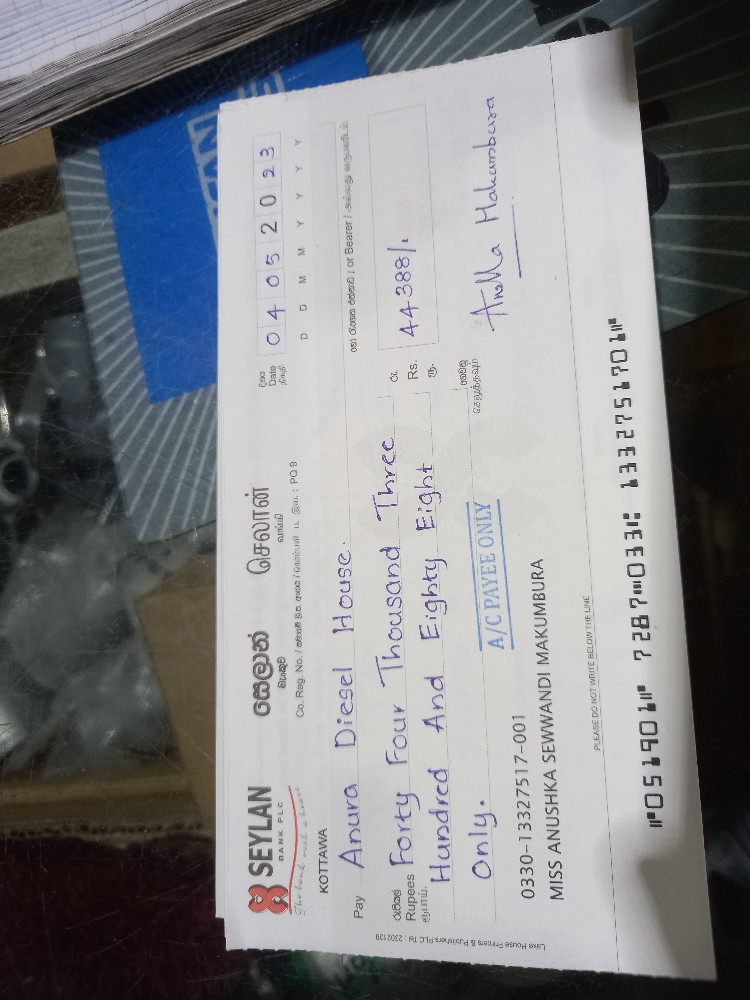 SEYLAN
BANK PLC
The bank with a heart
සෙලාන්
බැංකුව
செலான்
வங்கி
Co. Reg. No. : PQ 9
දිනය
Date
திகதி
04052023
D D M M Y Y Y Y
KOTTAWA
Pay Anura Diesel House.
or Bearer
රුපියල්
Rupees
ரூபாய்
Forty Four Thousand Three
Hundred And Eighty Eight
Only.
රු.
Rs.
ரூ.
44388/.
A/C PAYEE ONLY
0330-13327517-001
MISS ANUSHKA SEWWANDI MAKUMBURA
PLEASE DO NOT WRITE BELOW THE LINE
⑈051901⑈ 7287⑉033⑆ 1332751701⑈
Lake House Printers & Publishers PLC Tel : 2302139